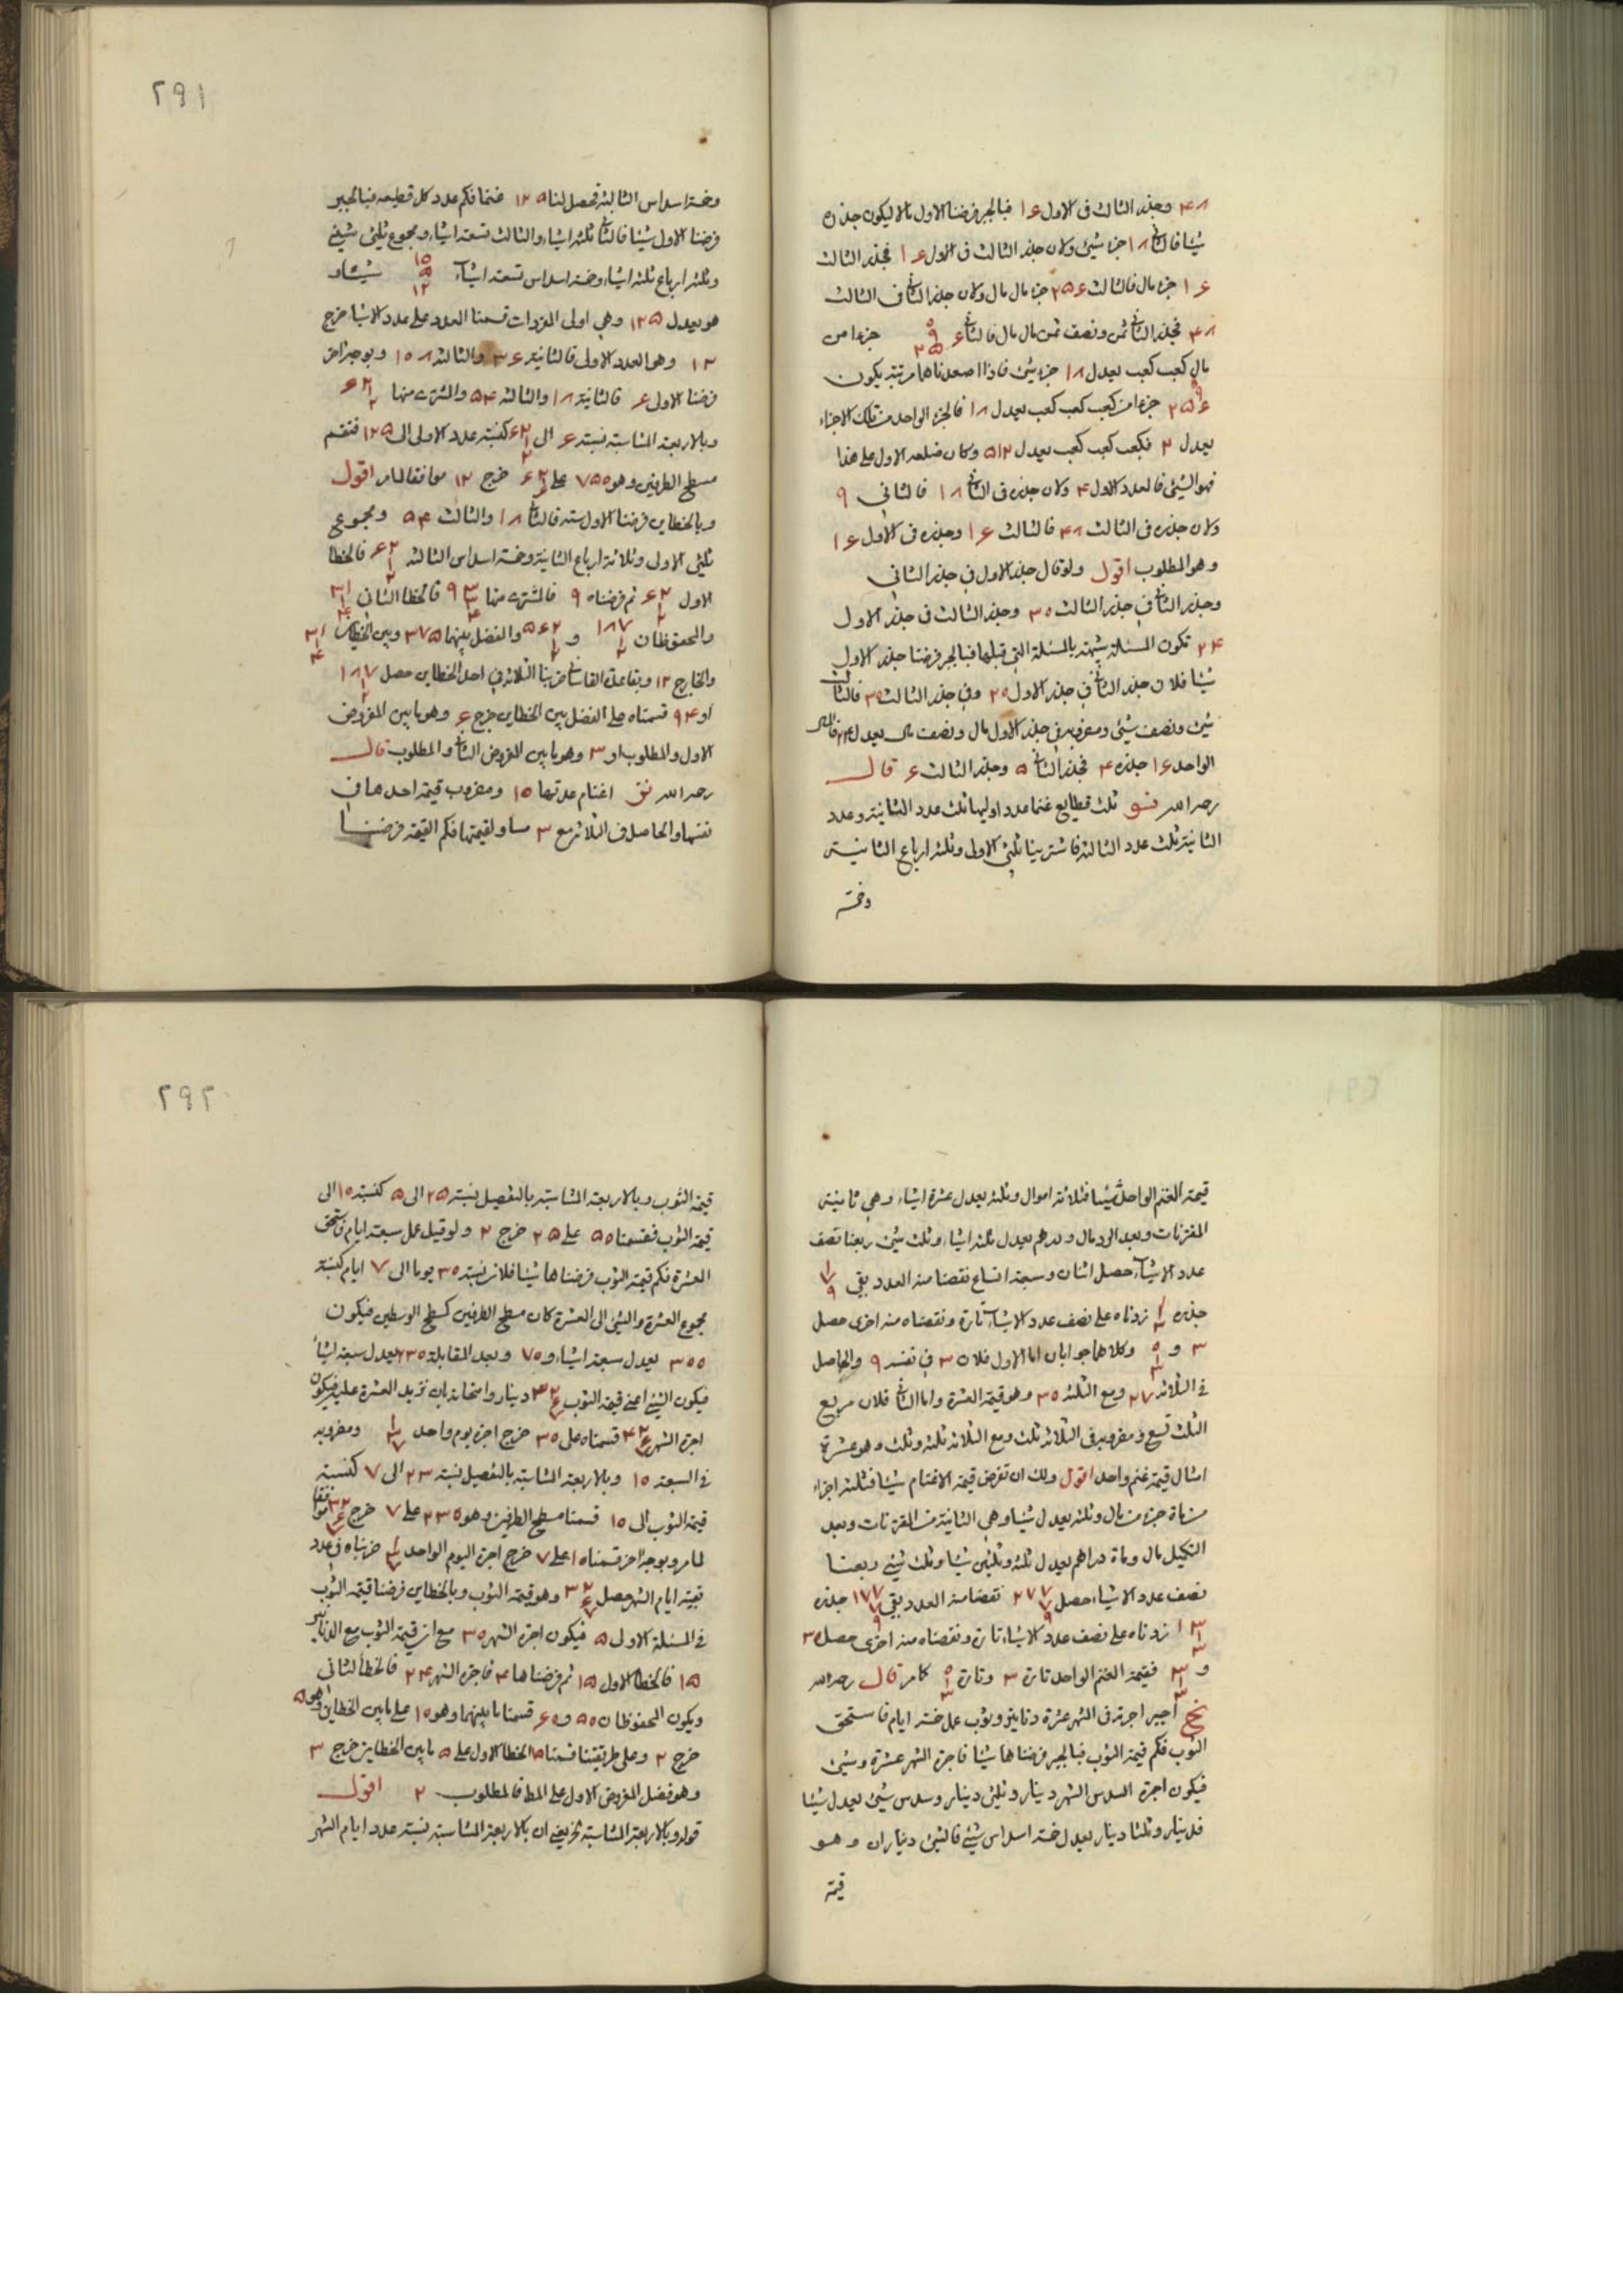 ۴۸ وجذر الثالث فى الاول ۱۶ فبالجبر فرضنا الاول مالا ليكون جذره
شيئا فالثانى ۱۸ جزء شيئ ولان جذر الثالث فى الاول ۱۶ فجذر الثالث
۱۶ جزء مال فالثالث ۲۵۶ جزء مال مال ولان جذر الثانى فى الثالث
۴۸ فجذر الثانى ثمن ونصف ثمن مال مال فالثانى جزءا من
مال كعب كعب يعدل ۱۸ جزء شيئ فاذا اصعدناهما مرتبة يكون
۲۵۶ جزءا من كعب كعب كعب يعدل ۱۸ فالجزء الواحد من تلك الاجزاء
يعدل ۲ فكعب كعب كعب يعدل ۵۱۲ وكان ضلعه الاول على هذا
فهو الشيئ فالعدد الاول ۴ ولان جذره فى الثانى ۱۸ فالثانى ۹
ولان جذره فى الثالث ۴۸ فالثالث ۱۶ وجذره فى الاول ۱۶
وهو المطلوب اقول ولو قال جذر الاول فى جذر الثانى
وجذر الثانى فى جذر الثالث ۳۰ وجذر الثالث فى جذر الاول
۲۴ تكون المسئلة شبيهة بالمسئلة التى قبلها فبالجبر فرضنا جذر الاول
شيئا فلان جذر الثانى فى جذر الاول ۲۰ وفى جذر الثالث ۳۰ فالثالث
شيئ ونصف شيئ ومضروبه فى جذر الاول مال ونصف مال يعدل ۲۴ فالمال
الواحد ۱۶ جذره ۴ فجذر الثانى ۵ وجذر الثالث ۶ قال
رحمه الله ثلث قطايع غنما عدد اوليها ثلث عدد الثانية وعدد
الثانية ثلث عدد الثالثة فاشترينا ثلثى الاولى وثلثة ارباع الثانية
وخمسة
۲۹۱
وخمسة اسداس الثالثة فحصل لنا ۱۲۵ غنما فكم عدد كل قطيعه فبالجبر
فرضنا الاول شيئا فالثانى ثلثة اشياء والثالث تسعة اشياء ومجموع ثلثى شيئ
وثلثة ارباع ثلثة اشياء وخمسة اسداس تسعة اشياء ۱۰ ۵ ۱۲
هو يعدل ۱۲۵ وهى اولى المفردات قسمنا العدد على عدد الاشياء خرج
۱۲ وهو العدد الاولى فالثانية ۳۶ والثالثة ۱۰۸ وبوجه اخر
فرضنا الاولى ۶ فالثانية ۱۸ والثالثة ۵۴ والمشترى منها ۶۲ ۱ ۲
وبالاربعة المتناسبة نسبة ۶ الى ۶۲ ۱ ۲ كنسبة عدد الاولى الى ۱۲۵ فنقسم
مسطح الطرفين وهو ۷۵۰ على ۶۲ ۱ ۲ خرج ۱۲ موافقا لما مر اقول
وبالخطاين فرضنا الاول ستة فالثانى ۱۸ والثالث ۵۴ ومجموع
ثلثى الاولى وثلاثة ارباع الثانية وخمسة اسداس الثالثة ۶۲ ۱ ۲ فالخطا
الاول ۶۲ ۱ ۲ ثم فرضناه ۹ فالمشترى منها ۹۳ ۳ ۴ فالخطا الثانى ۳۱ ۱ ۴
والمحفوظان ۱۸۷ ۱ ۲ و ۵۶۲ ۱ ۲ والفضل بينهما ۳۷۵ وبين الخطاين ۳۱ ۱ ۴
والخارج ۱۲ وبقاعدة ضربنا الثلاثة فى احد الخطاين حصل ۱۸۷ ۱ ۲
او ۹۴ قسمناه على الفضل بين الخطاين خرج ۶ وهو ما بين المفروض
الاول والمطلوب او ۳ وهو ما بين المفروض الثانى والمطلوب قال
رحمه الله اغنام عدتها ۱۰ ومضروب قيمة احدها فى
نفسها والحاصل فى الثلاثة مع ۳ مساو لقيمتها فكم القيمة فرضنا
قيمة الغنم الواحد شيئا فثلاثة اموال وثلثة يعدل عشرة اشياء وهى ثانية
المقترنات وبعد الرد مال ودرهم يعدل ثلثة اشياء وثلث شيئ ربعنا نصف
عدد الاشياء حصل اثنان وسبعة اتساع نقصنا منه العدد بقى ۱ ۷ ۹
جذره ۱ ۱ ۳ زدناه على نصف عدد الاشياء تارة ونقصناه منه اخرى حصل
۳ و ۰ ۱ ۳ وكلاهما جوابان اما الاول فلان ۳ فى نفسه ۹ والحاصل
فى الثلاثة ۲۷ ومع الثلثة ۳۰ وهو قيمة العشرة واما الثانى فلان مربع
الثلث تسع ومضروبه فى الثلاثة ثلث ومع الثلاثة ثلثة وثلث وهو عشرة
امثال قيمة غنم واحد اقول ولك ان تفرض قيمة الاغنام شيئا فثلثة اجزاء
من مائة جزء من مال وثلثة يعدل شيئا وهى الثانية من المقترنات وبعد
التكميل مال ومائة دراهم يعدل ثلثة وثلثين شيئا وثلث شيئ ربعنا
نصف عدد الاشياء حصل ۲۷۷ ۷ ۹ نقصنا منه العدد بقى ۱۷۷ ۷ ۹ جذره
۱۳ ۱ ۳ زدناه على نصف عدد الاشياء تارة ونقصناه منه اخرى حصل ۳۰
و ۳ ۱ ۳ فقيمة الغنم الواحد تارة ۳ وتارة ۰ ۱ ۳ كما مر قال رحمه الله
نح اجير اجرته فى الشهر عشرة دنانير وثوب عمل خمسة ايام فاستحق
الثوب فكم قيمة الثوب فبالجبر فرضناها شيئا فاجرة الشهر عشرة وشيئ
فيكون اجرة السدس الشهر دينار وثلثى دينار وسدس شيئ يعدل شيئا
فدينار وثلثا دينار يعدل خمسة اسداس شيئ فالشيئ ديناران وهو
قيمة
۲۹۲
قيمة الثوب وبالاربعة المتناسبة بالتفصيل نسبة ۲۵ الى ۵ كنسبة ۱۰ الى
قيمة الثوب فقسمنا ۵۰ على ۲۵ خرج ۲ ولو قيل عمل سبعة ايام فاستحق
العشرة فكم قيمة الثوب فرضناها شيئا فلان نسبة ۳۰ يوما الى ۷ ايام كنسبة
مجموع العشرة والشيئ الى العشرة كان مسطح الطرفين كمسطح الوسطين فيكون
۳۰۰ يعدل سبعة اشياء و ۷۰ وبعد المقابلة ۲۳۰ يعدل سبعة اشياء
فيكون الشيئ اعنى قيمة الثوب ۳۲ ۶ ۷ دينار وامتحانه بان نزيد العشرة عليه فيكون
اجرة الشهر ۴۲ ۶ ۷ قسمناه على ۳۰ خرج اجرة يوم واحد ۱ ۳ ۷ ومضروبه
فى السبعة ۱۰ وبالاربعة المتناسبة بالتفصيل نسبة ۲۳ الى ۷ كنسبة
قيمة الثوب الى ۱۰ قسمنا مسطح الطرفين وهو ۲۳۰ على ۷ خرج ۳۲ ۶ ۷ موافقا
لما مر وبوجه اخر قسمنا ۱۰ على ۷ خرج اجرة اليوم الواحد ۱ ۳ ۷ ضربناه فى عدد
بقية ايام الشهر حصل ۳۲ ۶ ۷ وهو قيمة الثوب وبالخطاين فرضنا قيمة الثوب
فى المسئلة الاول ۵ فيكون اجرة الشهر ۳۰ مع ان قيمة الثوب مع الدنانير
۱۵ فالخطا الاول ۱۵ ثم فرضناها ۴ فاجرة الشهر ۲۴ فالخطأ الثانى
ويكون المحفوظان ۵۰ و ۶۰ قسمنا ما بينهما وهو ۱۰ على ما بين الخطاين وهو ۵
خرج ۲ وعلى طريقتنا قسمنا ۱۵ الخطا الاول على ۵ ما بين الخطاين خرج ۳
وهو فضل المفروض الاول على المط فالمطلوب ۲ اقول
قوله وبالاربعة المتناسبة ان بالاربعة المتناسبة نسبة عدد ايام الشهر